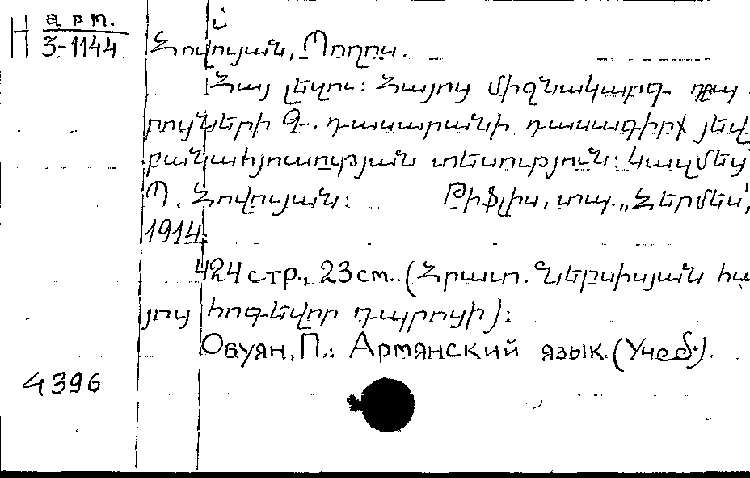 Н арт.
3-1144
Հովույան, Պողոս.
Հայ լեզու: Հայոց միջնակարգ դպ
րոցների Գ. դասարանի դասագիրք յեվ
բանաստության տեսություն: Կազմեց
Պ. Հովույան: Թիֆլիս, տպ. „Հերմես",
1914.
424 стр., 23 см. (Հրատ. Ներսիսյան հա
յոց հոգեվոր դպրոցի):
Овуян, П.: Армянский язык (Учеб.).
4396